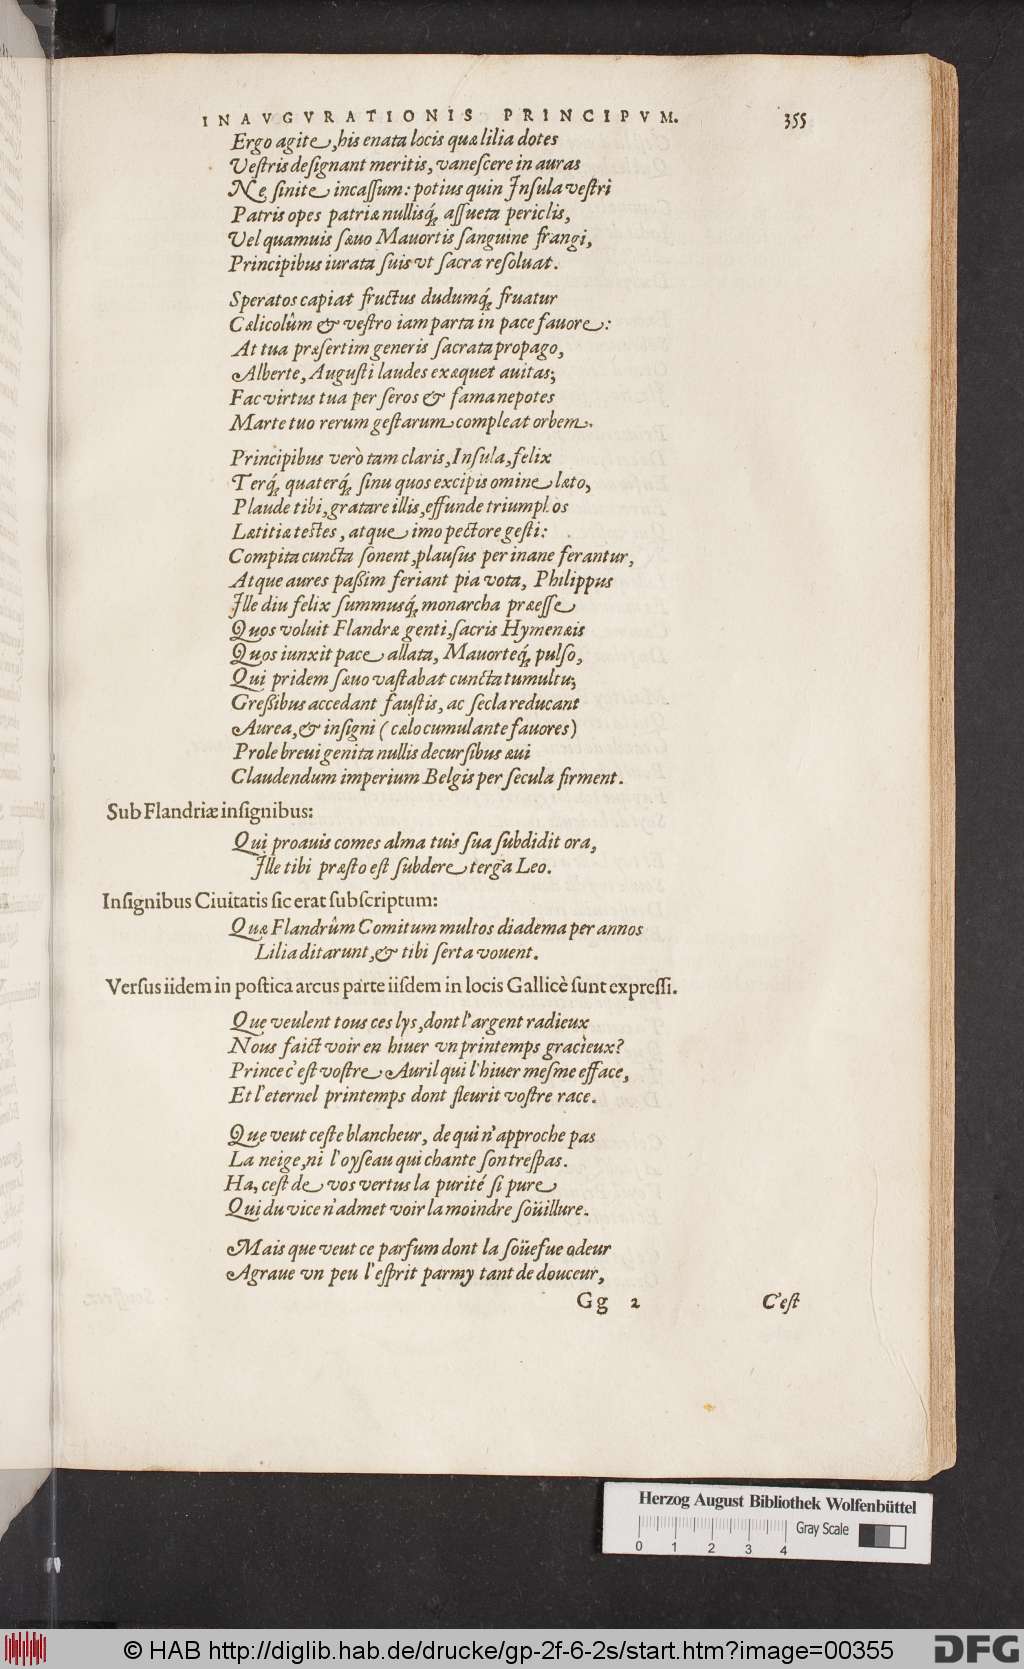 INAVGVRATIONIS PRINCIPVM. 355
Ergo agite, his enata locis quæ lilia dotes
Vestris designant meritis, vanescere in auras
Ne sinite incassum: potius quin Insula vestri
Patris opes patriæ nullisq́; assueta periclis,
Vel quamuis sæuo Mauortis sanguine frangi,
Principibus iurata suis vt sacra resoluat.
Speratos capiat fructus dudumq́; fruatur
Cælicolûm & vestro iam parta in pace fauore:
At tua præsertim generis sacrata propago,
Alberte, Augusti laudes exæquet auitas;
Fac virtus tua per seros & fama nepotes
Marte tuo rerum gestarum compleat orbem.
Principibus verò tam claris, Insula, felix
Terq́; quaterq́; sinu quos excipis omine læto,
Plaude tibi, gratare illis, effunde triumphos
Lætitiæ testes, atque imo pectore gesti:
Compita cuncta sonent, plausus per inane ferantur,
Atque aures paßim feriant pia vota, Philippus
Ille diu felix summusq́; monarcha præesse
Quos voluit Flandræ genti, sacris Hymenæis
Quos iunxit pace allata, Mauorteq́; pulso,
Qui pridem sæuo vastabat cuncta tumultu;
Greßibus accedant faustis, ac secla reducant
Aurea, & insigni (cælo cumulante fauores)
Prole breui genita nullis decursibus æui
Claudendum imperium Belgis per secula firment.
Sub Flandriæ insignibus:
Qui proauis comes alma tuis sua subdidit ora,
Ille tibi præsto est subdere terga Leo.
Insignibus Ciuitatis sic erat subscriptum:
Quæ Flandrûm Comitum multos diadema per annos
Lilia ditarunt, & tibi serta vouent.
Versus iidem in postica arcus parte iisdem in locis Gallicè sunt expressi.
Que veulent tous ces lys, dont l'argent radieux
Nous faict voir en hiuer vn printemps gracieux?
Prince c'est vostre Auril qui l'hiuer mesme efface,
Et l'eternel printemps dont fleurit vostre race.
Que veut ceste blancheur, de qui n'approche pas
La neige, ni l'oyseau qui chante son trespas.
Ha, cest de vos vertus la purité si pure
Qui du vice n'admet voir la moindre soüillure.
Mais que veut ce parfum dont la soüefue odeur
Agraue vn peu l'esprit parmy tant de douceur,
Gg 2 C'est
Herzog August Bibliothek Wolfenbüttel
Gray Scale
0 1 2 3 4
© HAB http://diglib.hab.de/drucke/gp-2f-6-2s/start.htm?image=00355
DFG